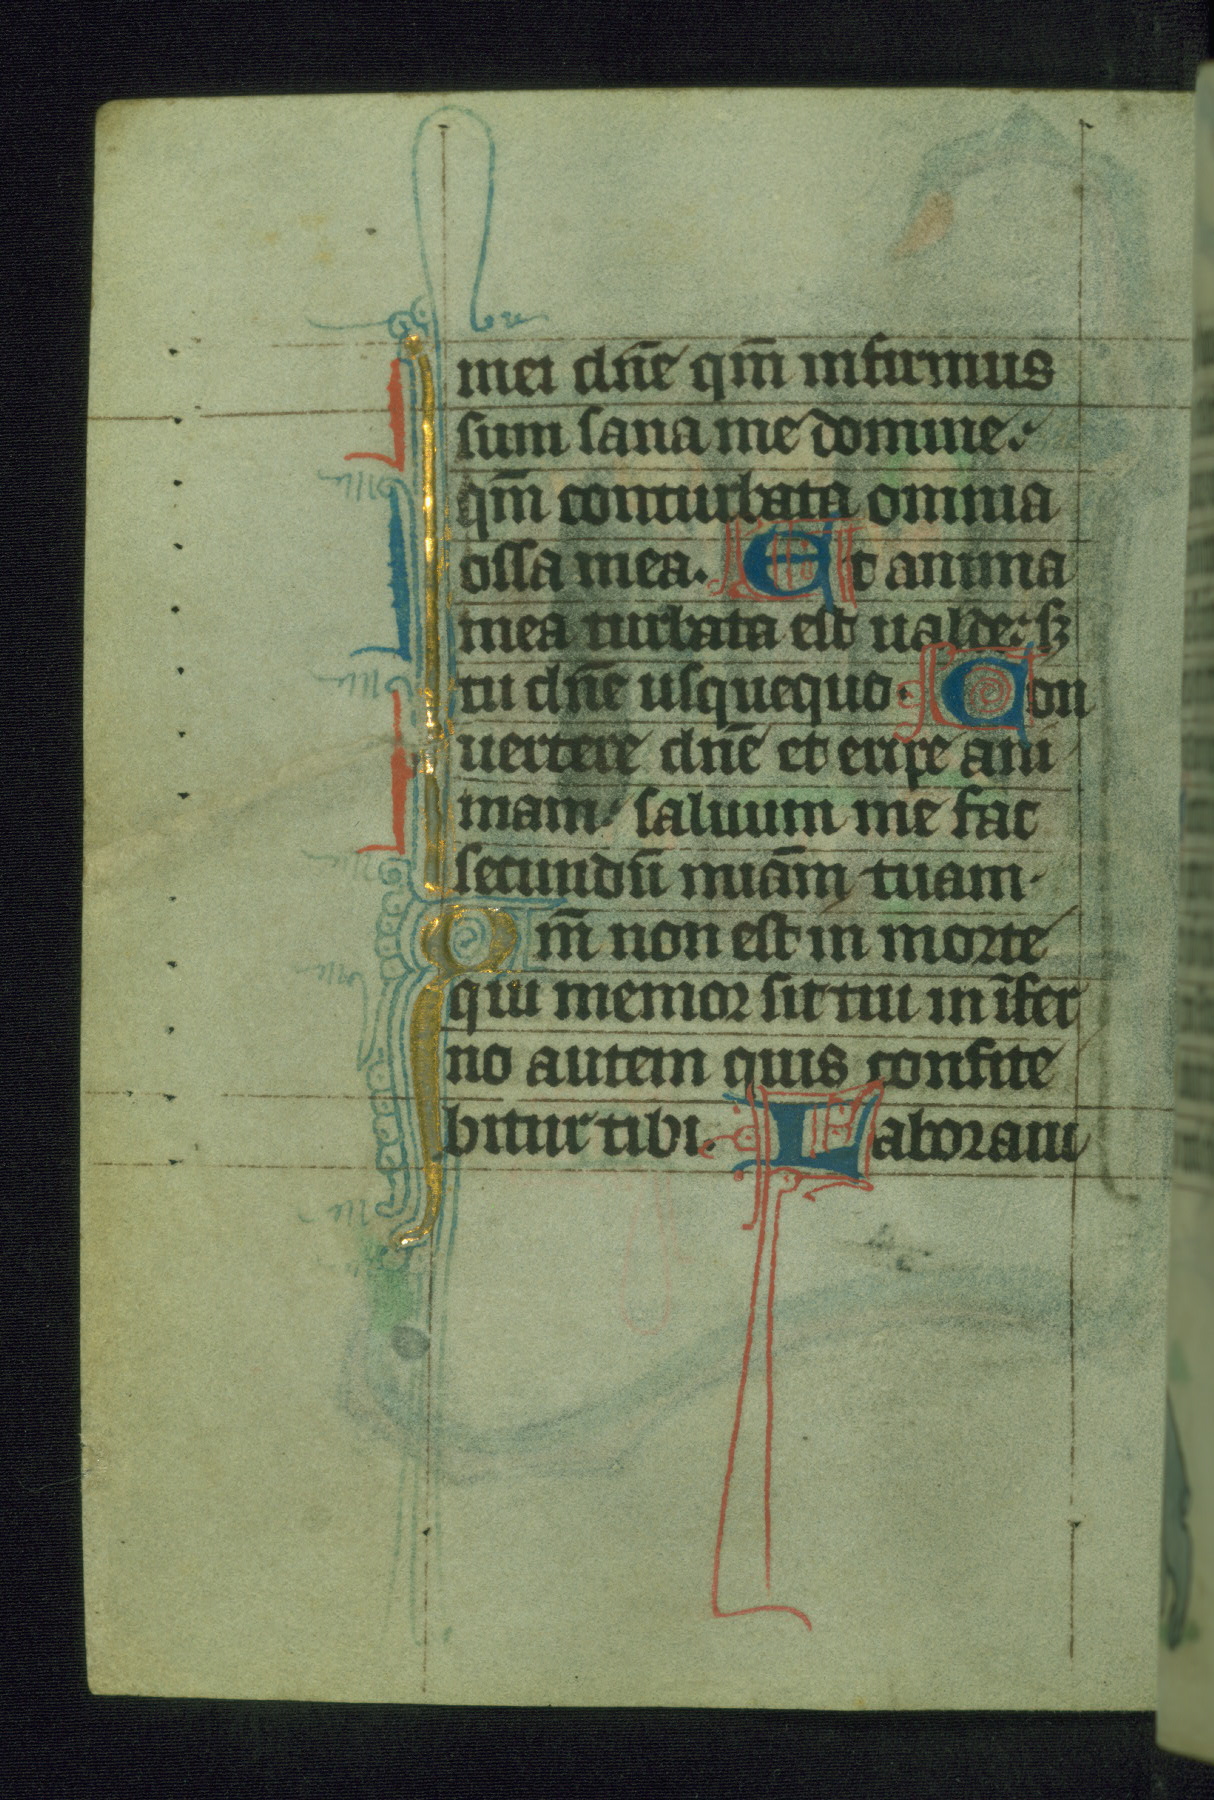 mei dn̄e qm̄ infirmus
sum sana me domine
qm̄ conturbata omnia
ossa mea. Et anima
mea turbata est ualde: sꝫ
tu dn̄e usquequo. Con
uertere dn̄e et eripe ani
mam saluum me fac
secundū miam̄ tuam.
Qm̄ non est in morte
qui memor sit tui in īfer
no autem quis confite
bitur tibi. Laboraui